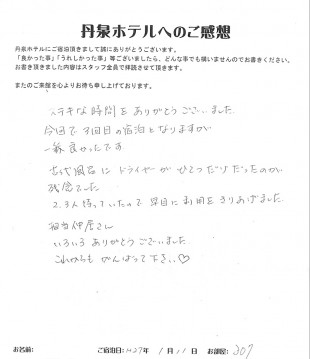 丹泉ホテルへのご感想
丹泉ホテルにご宿泊頂きまして誠にありがとうございます。
「良かった事」「うれしかった事」等ございましたら、どんな事でも構いませんのでお書きください。
お書き頂きました内容はスタッフ全員で拝読させて頂きます。
またのご来館を心よりお待ち申し上げております。
ステキな時間をありがとうございました
今回で3回目の宿泊となりますが
一番良かったです
古代風呂にドライヤーがひとつだけだったのが
残念でした
2.3人待っていたので早目に利用をきりあげました
担当仲居さん
いろいろありがとうございました
これからもがんばって下さい♡
お名前:
ご宿泊日:H27年 1月11日 お部屋: 307